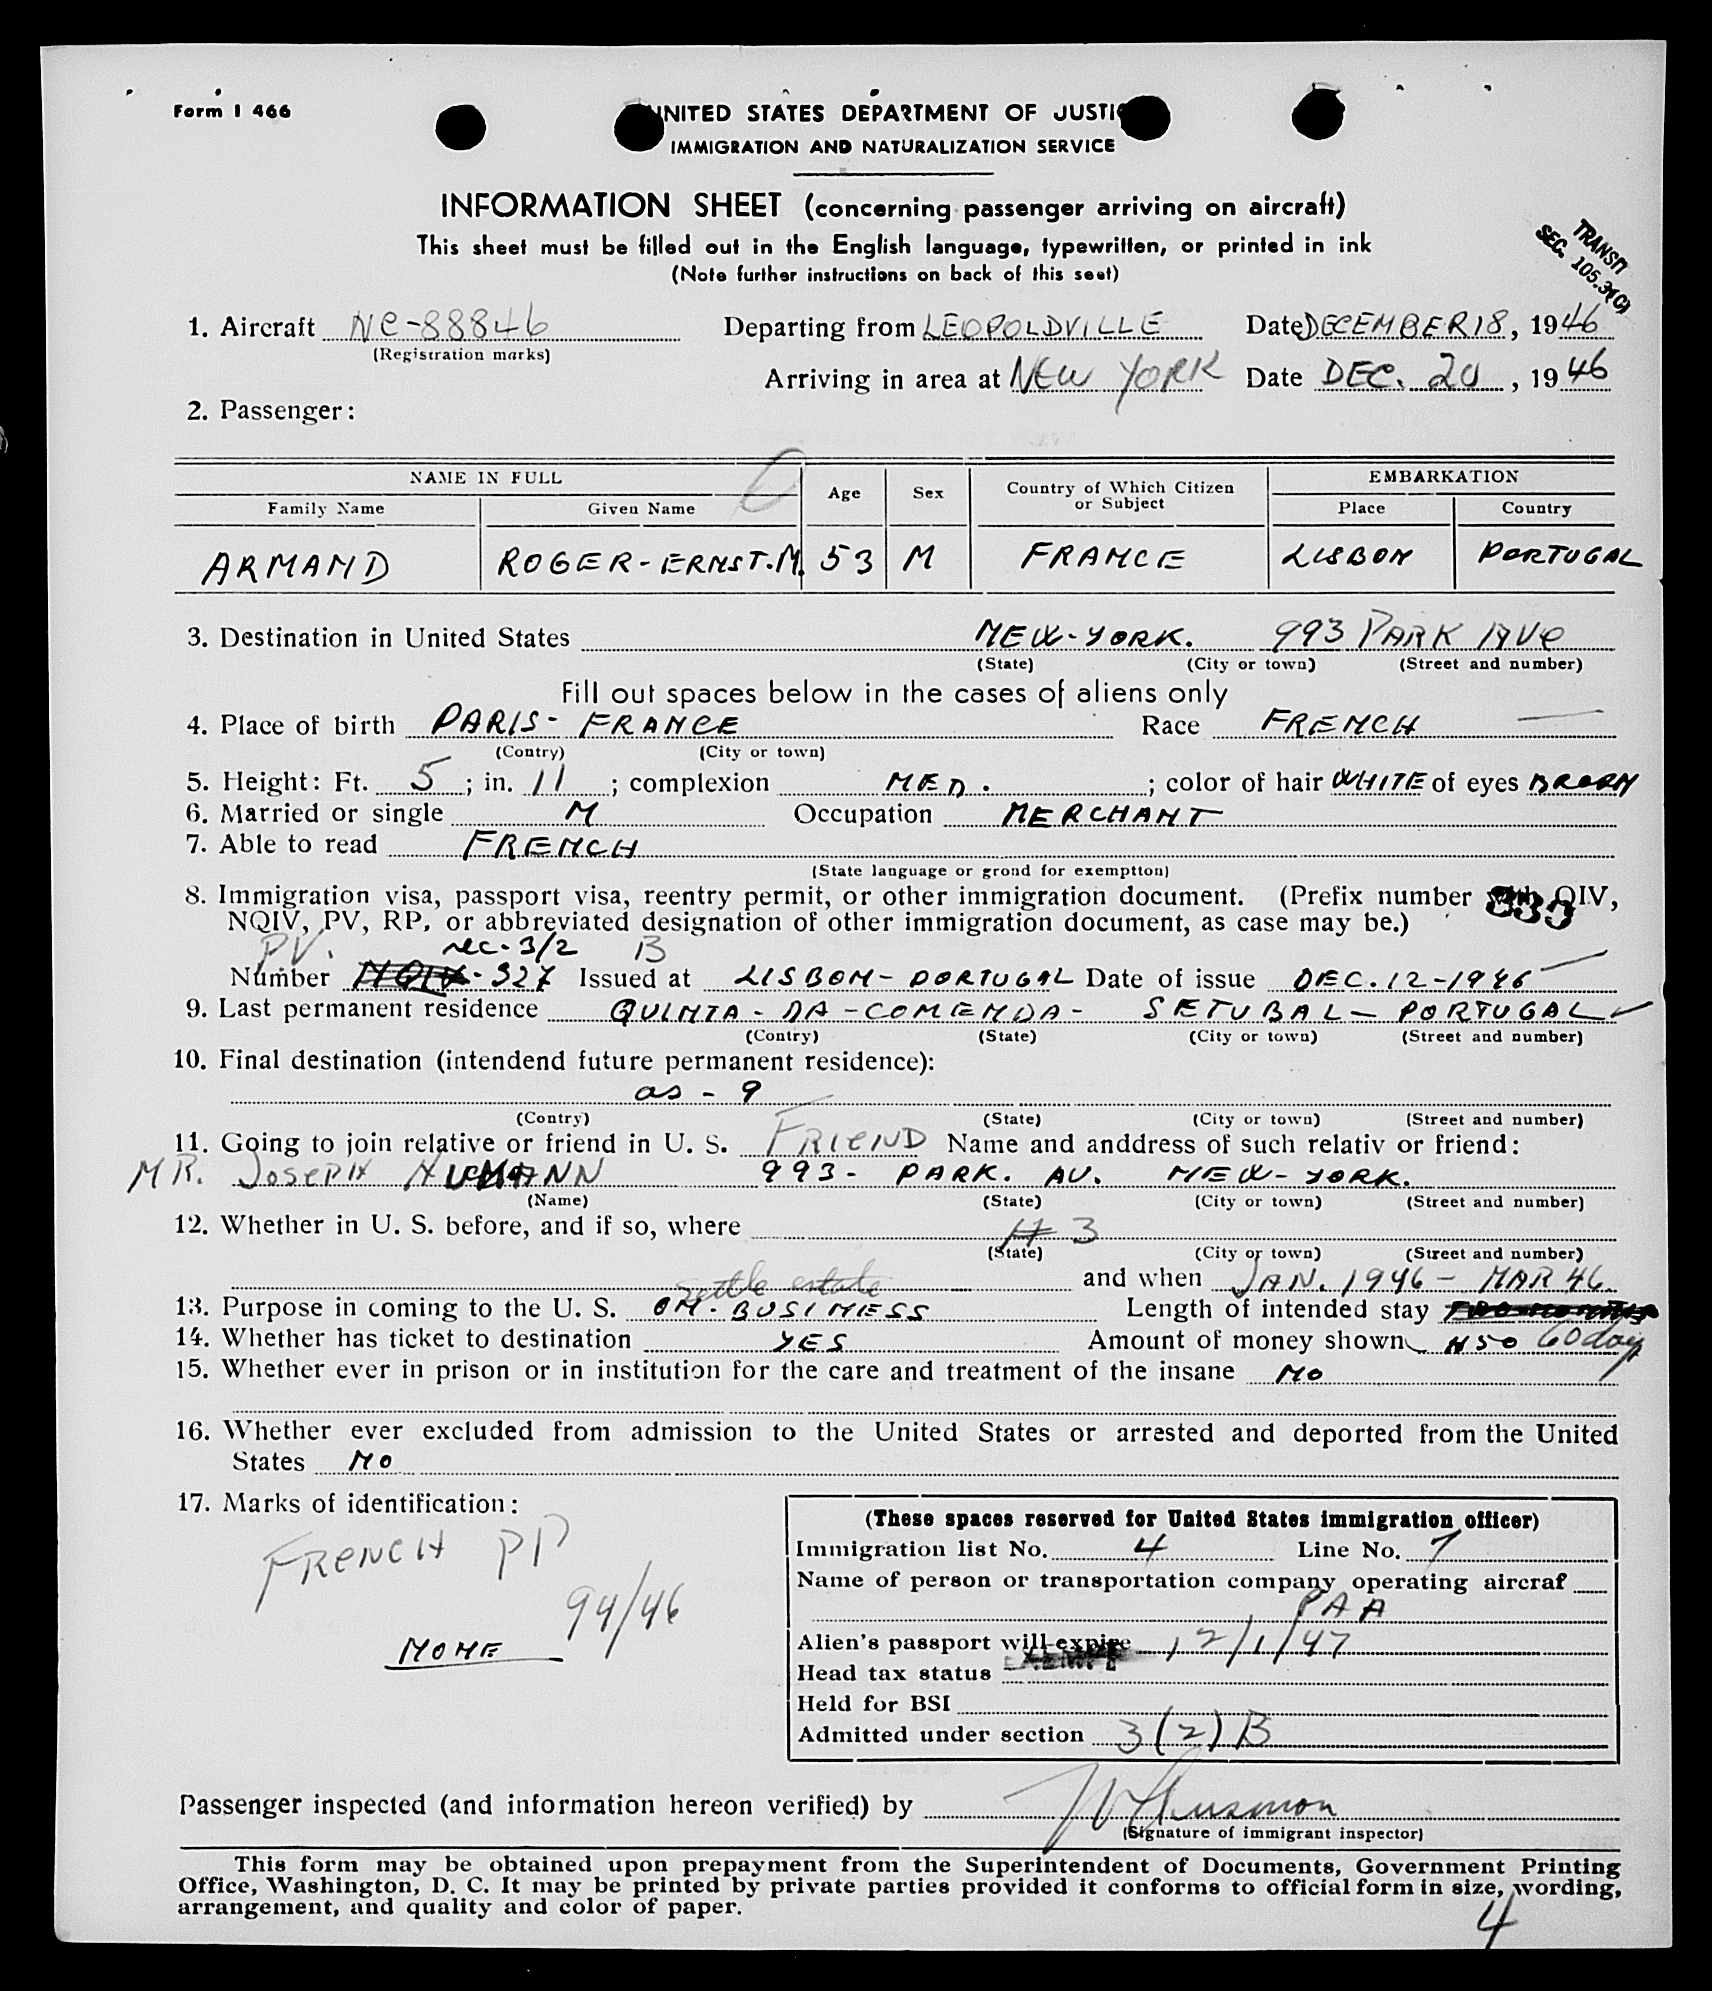 Form I 466
UNITED STATES DEPARTMENT OF JUSTIC
IMMIGRATION AND NATURALIZATION SERVICE
INFORMATION SHEET (concerning passenger arriving on aircraft)
This sheet must be filled out in the English language, typewritten, or printed in ink
(Note further instructions on back of this seet)
TRANSIT
SEC. 105.3(C)
1. Aircraft NC-88846 Departing from LEOPOLDVILLE Date DECEMBER 18, 1946
(Registration marks)
Arriving in area at NEW YORK Date DEC. 20, 1946
2. Passenger:
NAME IN FULL Age Sex Country of Which Citizen or Subject EMBARKATION
Family Name Given Name Place Country
ARMAND ROGER-ERNST.M. 53 M FRANCE LISBON PORTUGAL
3. Destination in United States NEW-YORK. 993 PARK AVE
(State) (City or town) (Street and number)
Fill out spaces below in the cases of aliens only
4. Place of birth PARIS- FRANCE Race FRENCH
(Contry) (City or town)
5. Height: Ft. 5; in. 11; complexion MED.; color of hair WHITE of eyes BROWN
6. Married or single M Occupation MERCHANT
7. Able to read FRENCH
(State language or grond for exemptton)
8. Immigration visa, passport visa, reentry permit, or other immigration document. (Prefix number with QIV,
NQIV, PV, RP, or abbreviated designation of other immigration document, as case may be.) 333
PV. sec. 3/2 B
Number NQIV-327 Issued at LISBON-PORTUGAL Date of issue DEC.12-1946
9. Last permanent residence QUINTA-DA-COMENDA- SETUBAL-PORTUGAL
(Contry) (State) (City or town) (Street and number)
10. Final destination (intendend future permanent residence):
as - 9
(Contry) (State) (City or town) (Street and number)
11. Going to join relative or friend in U. S. FRIEND Name and anddress of such relativ or friend:
MR. JOSEPH 993- PARK. AV. NEW-YORK.
(Name) (State) (City or town) (Street and number)
12. Whether in U. S. before, and if so, where 3
(State) (City or town) (Street and number)
and when JAN. 1946 - MAR 46.
settle estate
13. Purpose in coming to the U. S. ON-BUSINESS Length of intended stay
14. Whether has ticket to destination YES Amount of money shown 450 60 days
15. Whether ever in prison or in institution for the care and treatment of the insane NO
16. Whether ever excluded from admission to the United States or arrested and deported from the United
States NO
17. Marks of identification:
FRENCH PP
94/46
NONE
(These spaces reserved for United States immigration officer)
Immigration list No. 4 Line No. 7
Name of person or transportation company operating aircraf
PAA
Alien's passport will expire 12/1/47
Head tax status EXEMPT
Held for BSI
Admitted under section 3(2)B
Passenger inspected (and information hereon verified) by
(Signature of immigrant inspector)
This form may be obtained upon prepayment from the Superintendent of Documents, Government Printing
Office, Washington, D. C. It may be printed by private parties provided it conforms to official form in size, wording,
arrangement, and quality and color of paper.
4